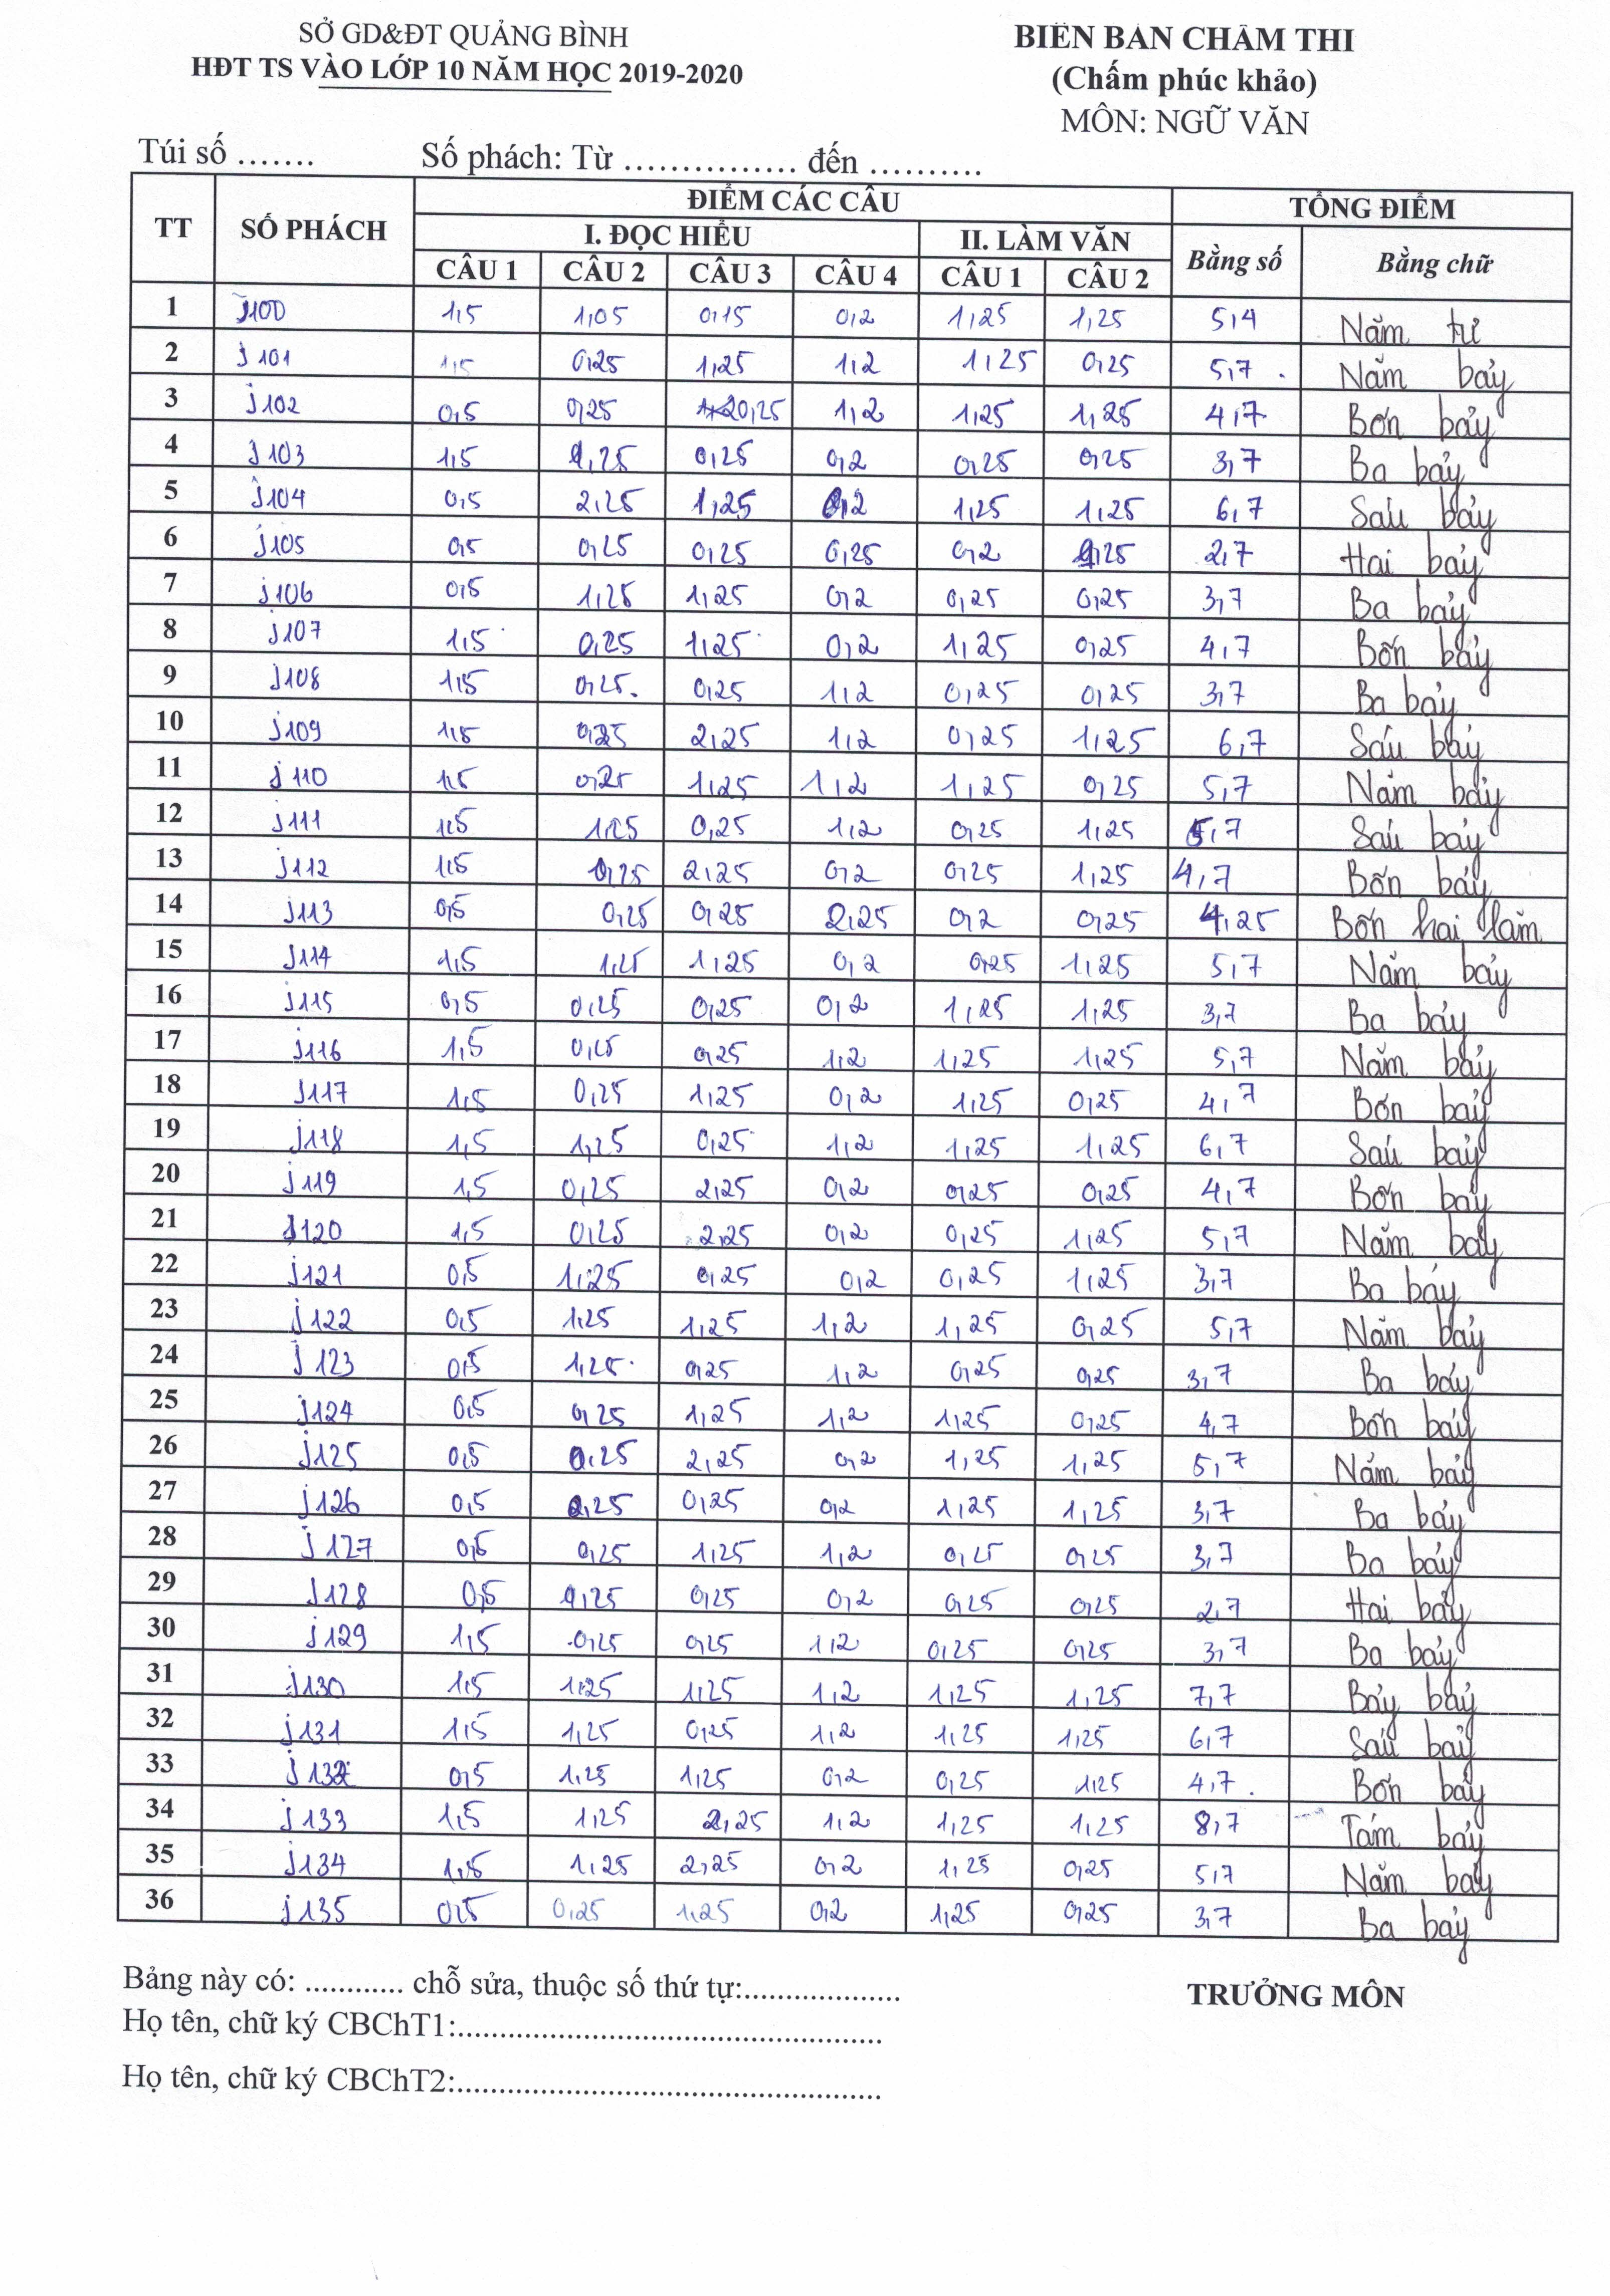 SỞ GD&ĐT QUẢNG BÌNH
HĐT TS VÀO LỚP 10 NĂM HỌC 2019-2020
BIÊN BẢN CHẤM THI
(Chấm phúc khảo)
MÔN: NGỮ VĂN
Túi số ....... Số phách: Từ ............... đến ..........
TT SỐ PHÁCH ĐIỂM CÁC CÂU TỔNG ĐIỂM
I. ĐỌC HIỂU II. LÀM VĂN Bằng số Bằng chữ
CÂU 1 CÂU 2 CÂU 3 CÂU 4 CÂU 1 CÂU 2
1 J100 1,5 1,05 0,15 0,2 1,25 1,25 5,4 Năm tư
2 J101 1,5 0,25 1,25 1,2 1,25 0,25 5,7 Năm bảy
3 J102 0,5 0,25 0,25 1,2 1,25 1,25 4,7 Bốn bảy
4 J103 1,5 1,25 0,25 0,2 0,25 0,25 3,7 Ba bảy
5 J104 0,5 2,25 1,25 0,2 1,25 1,25 6,7 Sáu bảy
6 J105 0,5 0,25 0,25 0,25 0,2 1,25 2,7 Hai bảy
7 J106 0,5 1,25 1,25 0,2 0,25 0,25 3,7 Ba bảy
8 J107 1,5 0,25 1,25 0,2 1,25 0,25 4,7 Bốn bảy
9 J108 1,5 0,25 0,25 1,2 0,25 0,25 3,7 Ba bảy
10 J109 1,5 0,25 2,25 1,2 0,25 1,25 6,7 Sáu bảy
11 J110 1,5 0,25 1,25 1,2 1,25 0,25 5,7 Năm bảy
12 J111 1,5 1,25 0,25 1,2 0,25 1,25 5,7 Sáu bảy
13 J112 1,5 0,25 2,25 0,2 0,25 1,25 4,7 Bốn bảy
14 J113 0,5 0,25 0,25 2,25 0,2 0,25 4,25 Bốn hai lăm
15 J114 1,5 1,25 1,25 0,2 0,25 1,25 5,7 Năm bảy
16 J115 0,5 0,25 0,25 0,2 1,25 1,25 3,7 Ba bảy
17 J116 1,5 0,25 0,25 1,2 1,25 1,25 5,7 Năm bảy
18 J117 1,5 0,25 1,25 0,2 1,25 0,25 4,7 Bốn bảy
19 J118 1,5 1,25 0,25 1,2 1,25 1,25 6,7 Sáu bảy
20 J119 1,5 0,25 2,25 0,2 0,25 0,25 4,7 Bốn bảy
21 J120 1,5 0,25 2,25 0,2 0,25 1,25 5,7 Năm bảy
22 J121 0,5 1,25 0,25 0,2 0,25 1,25 3,7 Ba bảy
23 J122 0,5 1,25 1,25 1,2 1,25 0,25 5,7 Năm bảy
24 J123 0,5 1,25 0,25 1,2 0,25 0,25 3,7 Ba bảy
25 J124 0,5 0,25 1,25 1,2 1,25 0,25 4,7 Bốn bảy
26 J125 0,5 0,25 2,25 0,2 1,25 1,25 5,7 Năm bảy
27 J126 0,5 0,25 0,25 0,2 1,25 1,25 3,7 Ba bảy
28 J127 0,5 0,25 1,25 1,2 0,25 0,25 3,7 Ba bảy
29 J128 0,5 1,25 0,25 0,2 0,25 0,25 2,7 Hai bảy
30 J129 1,5 0,25 0,25 1,2 0,25 0,25 3,7 Ba bảy
31 J130 1,5 1,25 1,25 1,2 1,25 1,25 7,7 Bảy bảy
32 J131 1,5 1,25 0,25 1,2 1,25 1,25 6,7 Sáu bảy
33 J132 0,5 1,25 1,25 0,2 0,25 1,25 4,7 Bốn bảy
34 J133 1,5 1,25 2,25 1,2 1,25 1,25 8,7 Tám bảy
35 J134 1,5 1,25 2,25 0,2 1,25 0,25 5,7 Năm bảy
36 J135 0,5 0,25 1,25 0,2 1,25 0,25 3,7 Ba bảy
Bảng này có: ............ chỗ sửa, thuộc số thứ tự:...................
TRƯỞNG MÔN
Họ tên, chữ ký CBChT1:...................................................
Họ tên, chữ ký CBChT2:...................................................